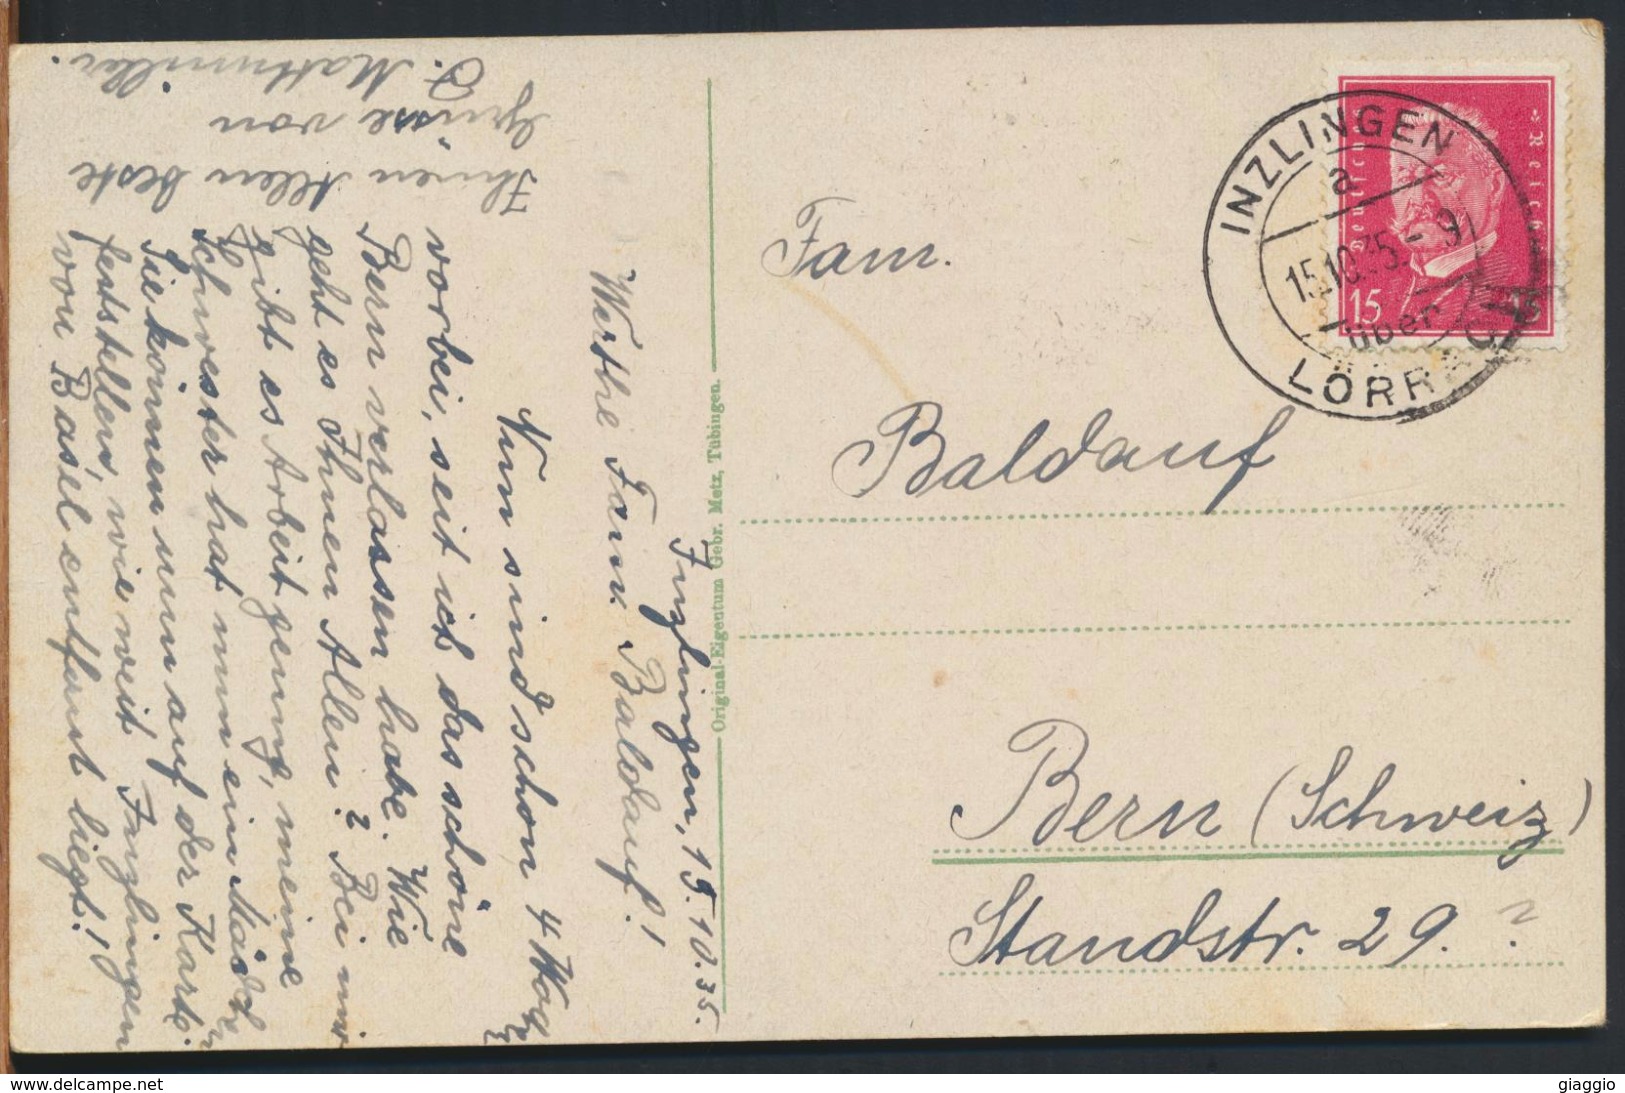 Inzlingen, 15.10.35.
Werthe Fam. Baldauf!
Nun sind schon 4 Wochen
vorbei, seit ich das schöne
Bern verlassen habe. Wie
geht es Ihnen Allen? Bei mir
gibt es Arbeit genug, meine
Schwester hat nun ein Mädchen
Sie können nun auf der Karte
feststellen, wie weit Inzlingen
von Basel entfernt liegt!
Ihnen Allen beste
Grüsse von
Original-Eigentum Gebr. Metz, Tübingen.
Fam.
Baldauf
Bern (Schweiz)
Standstr. 29. ?
Deutsches Reich
15 15
INZLINGEN
a
15.10.35.-9
über
LÖRRACH
delcampe.net
giaggio